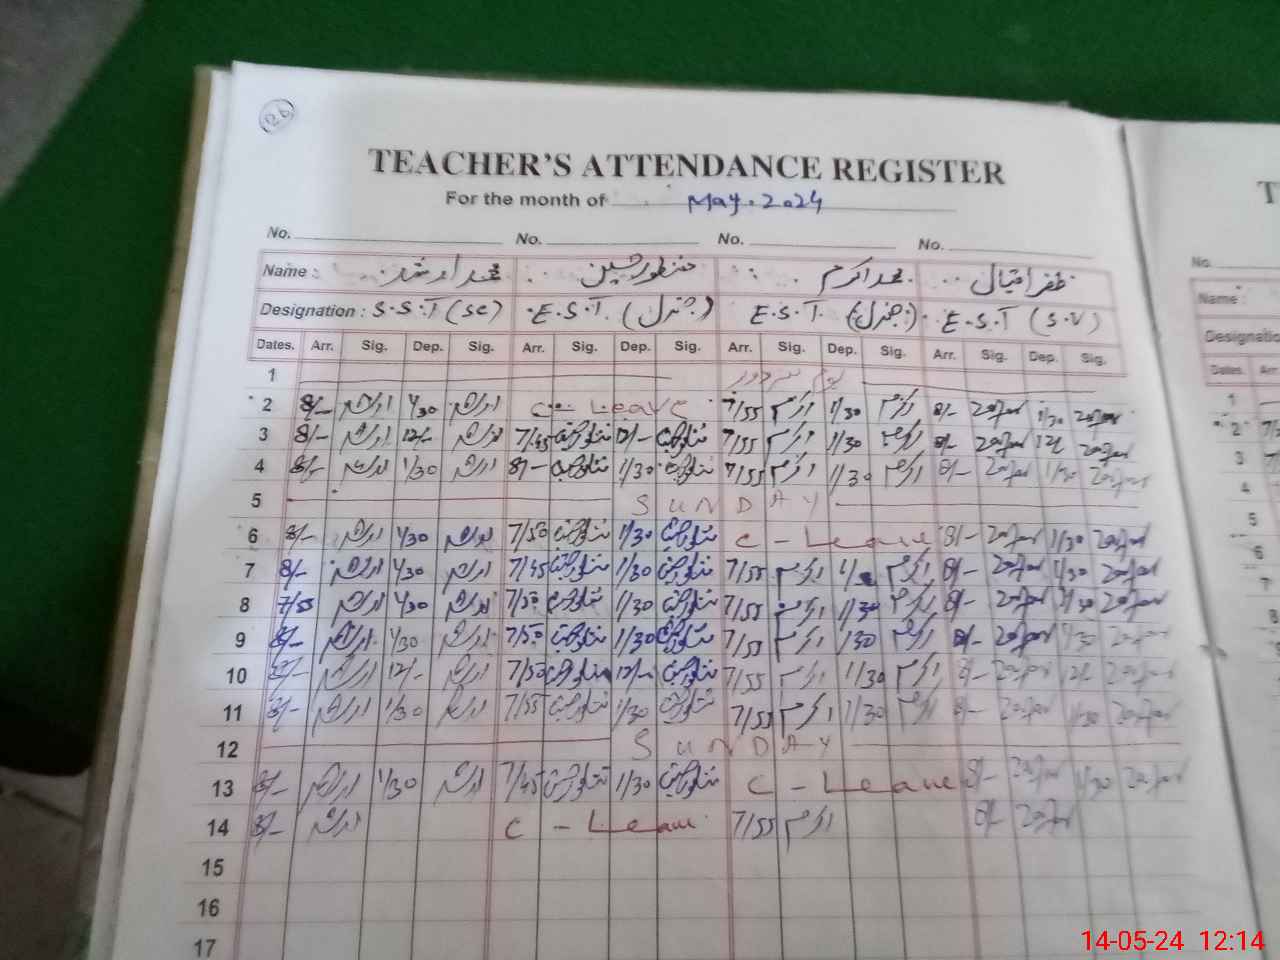 126
TEACHER'S ATTENDANCE REGISTER
For the month of May. 2024
No. No. No. No.
Name : محمد ارشد منظور حسین محمد اکرم ظفر اقبال
Designation : S.S.T (Sc) E.S.T. (جنرل) E.S.T. (جنرل) E.S.T (S.V)
Dates. Arr. Sig. Dep. Sig. Arr. Sig. Dep. Sig. Arr. Sig. Dep. Sig. Arr. Sig. Dep. Sig.
1 یوم مزدور
2 8/- ارشد 1/30 ارشد C - Leave 7/55 اکرم 1/30 اکرم 8/- Zafar 1/30 Zafar
3 8/- ارشد 12/- ارشد 7/45 منظور حسین 12/- منظور حسین 7/55 اکرم 1/30 اکرم 8/- Zafar 12/ Zafar
4 8/- ارشد 1/30 ارشد 8/- منظور حسین 1/30 منظور حسین 7/55 اکرم 1/30 اکرم 8/- Zafar 1/30 Zafar
5 SUNDAY
6 8/- ارشد 1/30 ارشد 7/50 منظور حسین 1/30 منظور حسین C - Leave 8/- Zafar 1/30 Zafar
7 8/- ارشد 1/30 ارشد 7/45 منظور حسین 1/30 منظور حسین 7/55 اکرم اکرم 8/- Zafar 1/30 Zafar
8 7/55 ارشد 1/30 ارشد 7/50 منظور حسین 1/30 منظور حسین 7/55 اکرم 1/30 اکرم 8/- Zafar 1/30 Zafar
9 8/- ارشد 1/30 ارشد 7/50 منظور حسین 1/30 منظور حسین 7/55 اکرم 1/30 اکرم 8/- Zafar 1/30 Zafar
10 8/- ارشد 12/- ارشد 7/50 منظور حسین 12/- منظور حسین 7/55 اکرم 1/30 اکرم 8/- Zafar 12/- Zafar
11 8/- ارشد 1/30 ارشد 7/55 منظور حسین 1/30 منظور حسین 7/55 اکرم 1/30 اکرم 8/- Zafar 1/30 Zafar
12 SUNDAY
13 8/- ارشد 1/30 ارشد 7/45 منظور حسین 1/30 منظور حسین C - Leave 8/- Zafar 1/30 Zafar
14 8/- ارشد C - Leave 7/55 اکرم 8/- Zafar
15
16
17
T
No.
Name :
Dates. Arr.
1
2
3
4
5
6
7
8
14-05-24 12:14